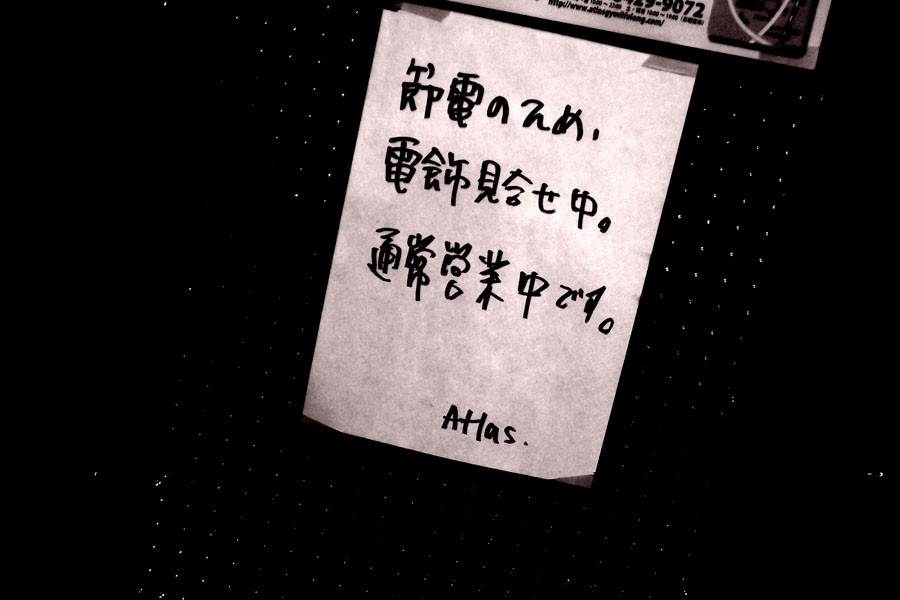 429-9072
http://www.atlasgymlifelong.com/
節電のため、
電飾見合せ中。
通常営業中です。
Atlas.